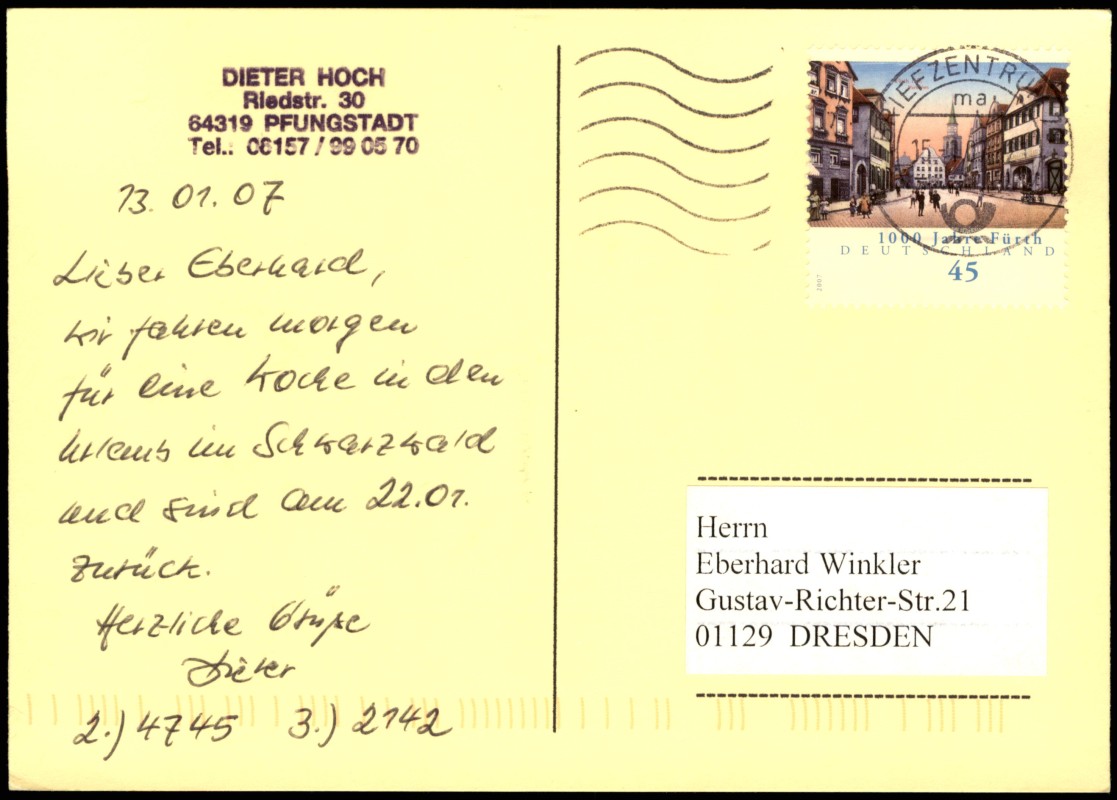 DIETER HOCH
Riedstr. 30
64319 PFUNGSTADT
Tel.: 06157 / 99 05 70
13.01.07
Lieber Eberhard,
wir fahren morgen
für eine Woche in den
Urlaub im Schwarzwald
und sind am 22.01.
zurück.
Herzliche Grüße
Dieter
2.) 4745 3.) 2142
BRIEFZENTRUM
ma
15.
1000 Jahre Fürth
DEUTSCHLAND
45
2007
Herrn
Eberhard Winkler
Gustav-Richter-Str.21
01129 DRESDEN